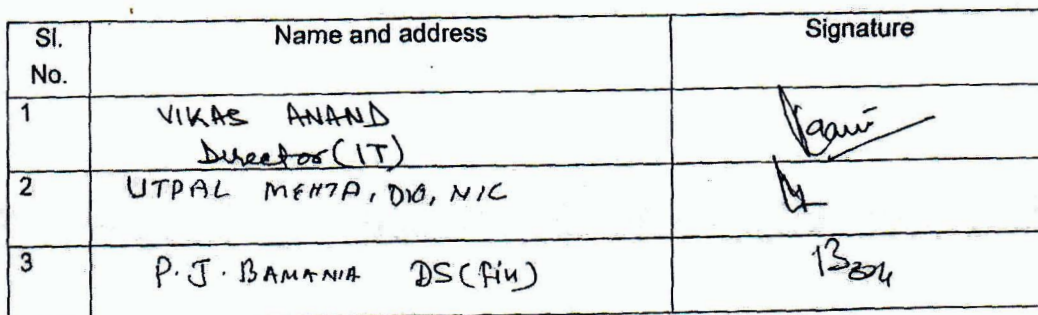 Sl. No. Name and address Signature
1 VIKAS ANAND
Director (IT)
2 UTPAL MEHTA, DIO, NIC
3 P. J. BAMANIA DS (fin)